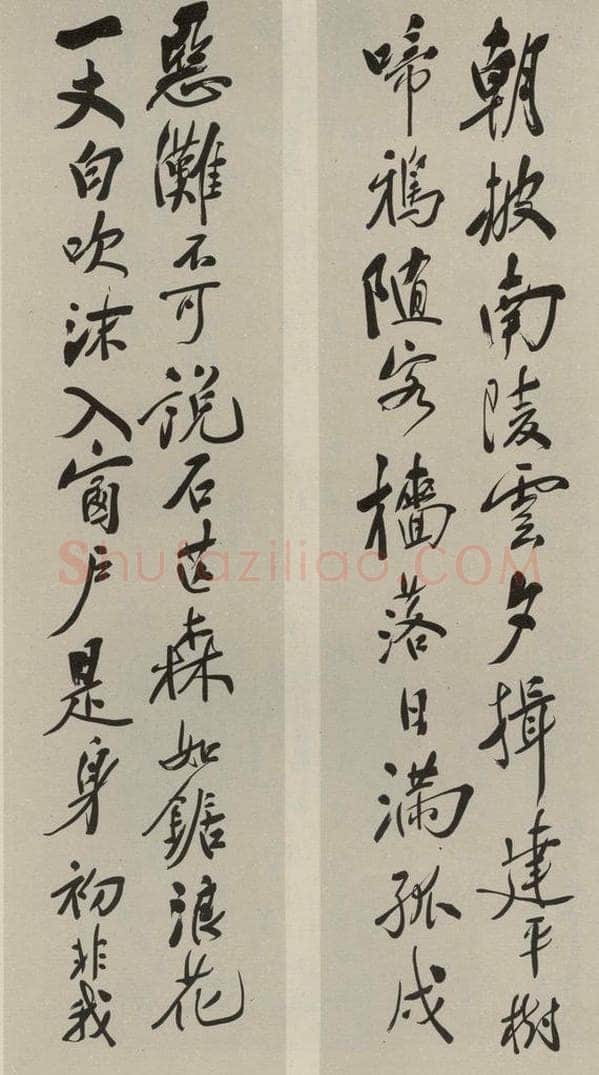 朝披南陵雲夕揖建平樹
啼鴉隨客檣落日滿孤戍
惡灘不可說石芒森如鋸浪花
一丈白吹沫入窗戶是身初非我
Shufaziliao.COM